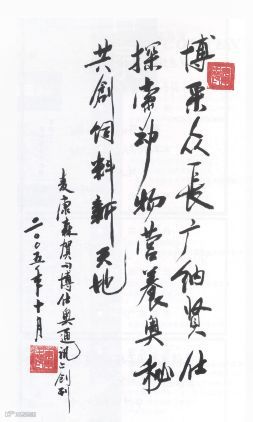 博采众長广纳贤仕
探索动物营養奥秘
共創饲料新天地
麦康森贺《博仕奥通讯》创刊
二〇〇五年十月